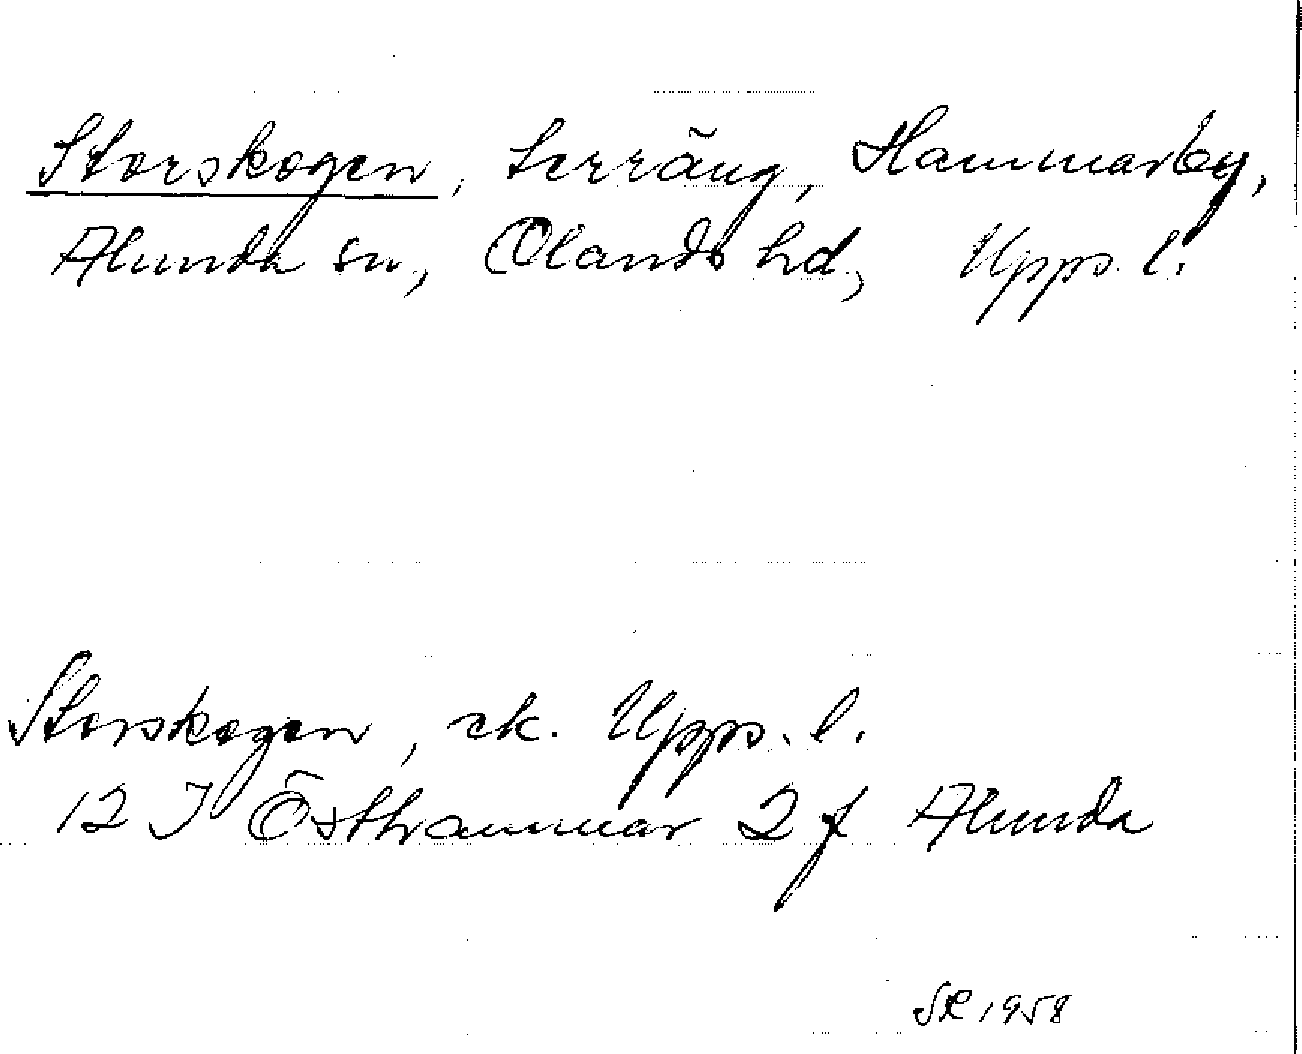 Storskogen, terräng, Hammarby,
Alunda sn, Olands hd, Upps. l.
Storskogen, ek. Upps. l.
12 I Östhammar 2 f Alunda
SR 1958